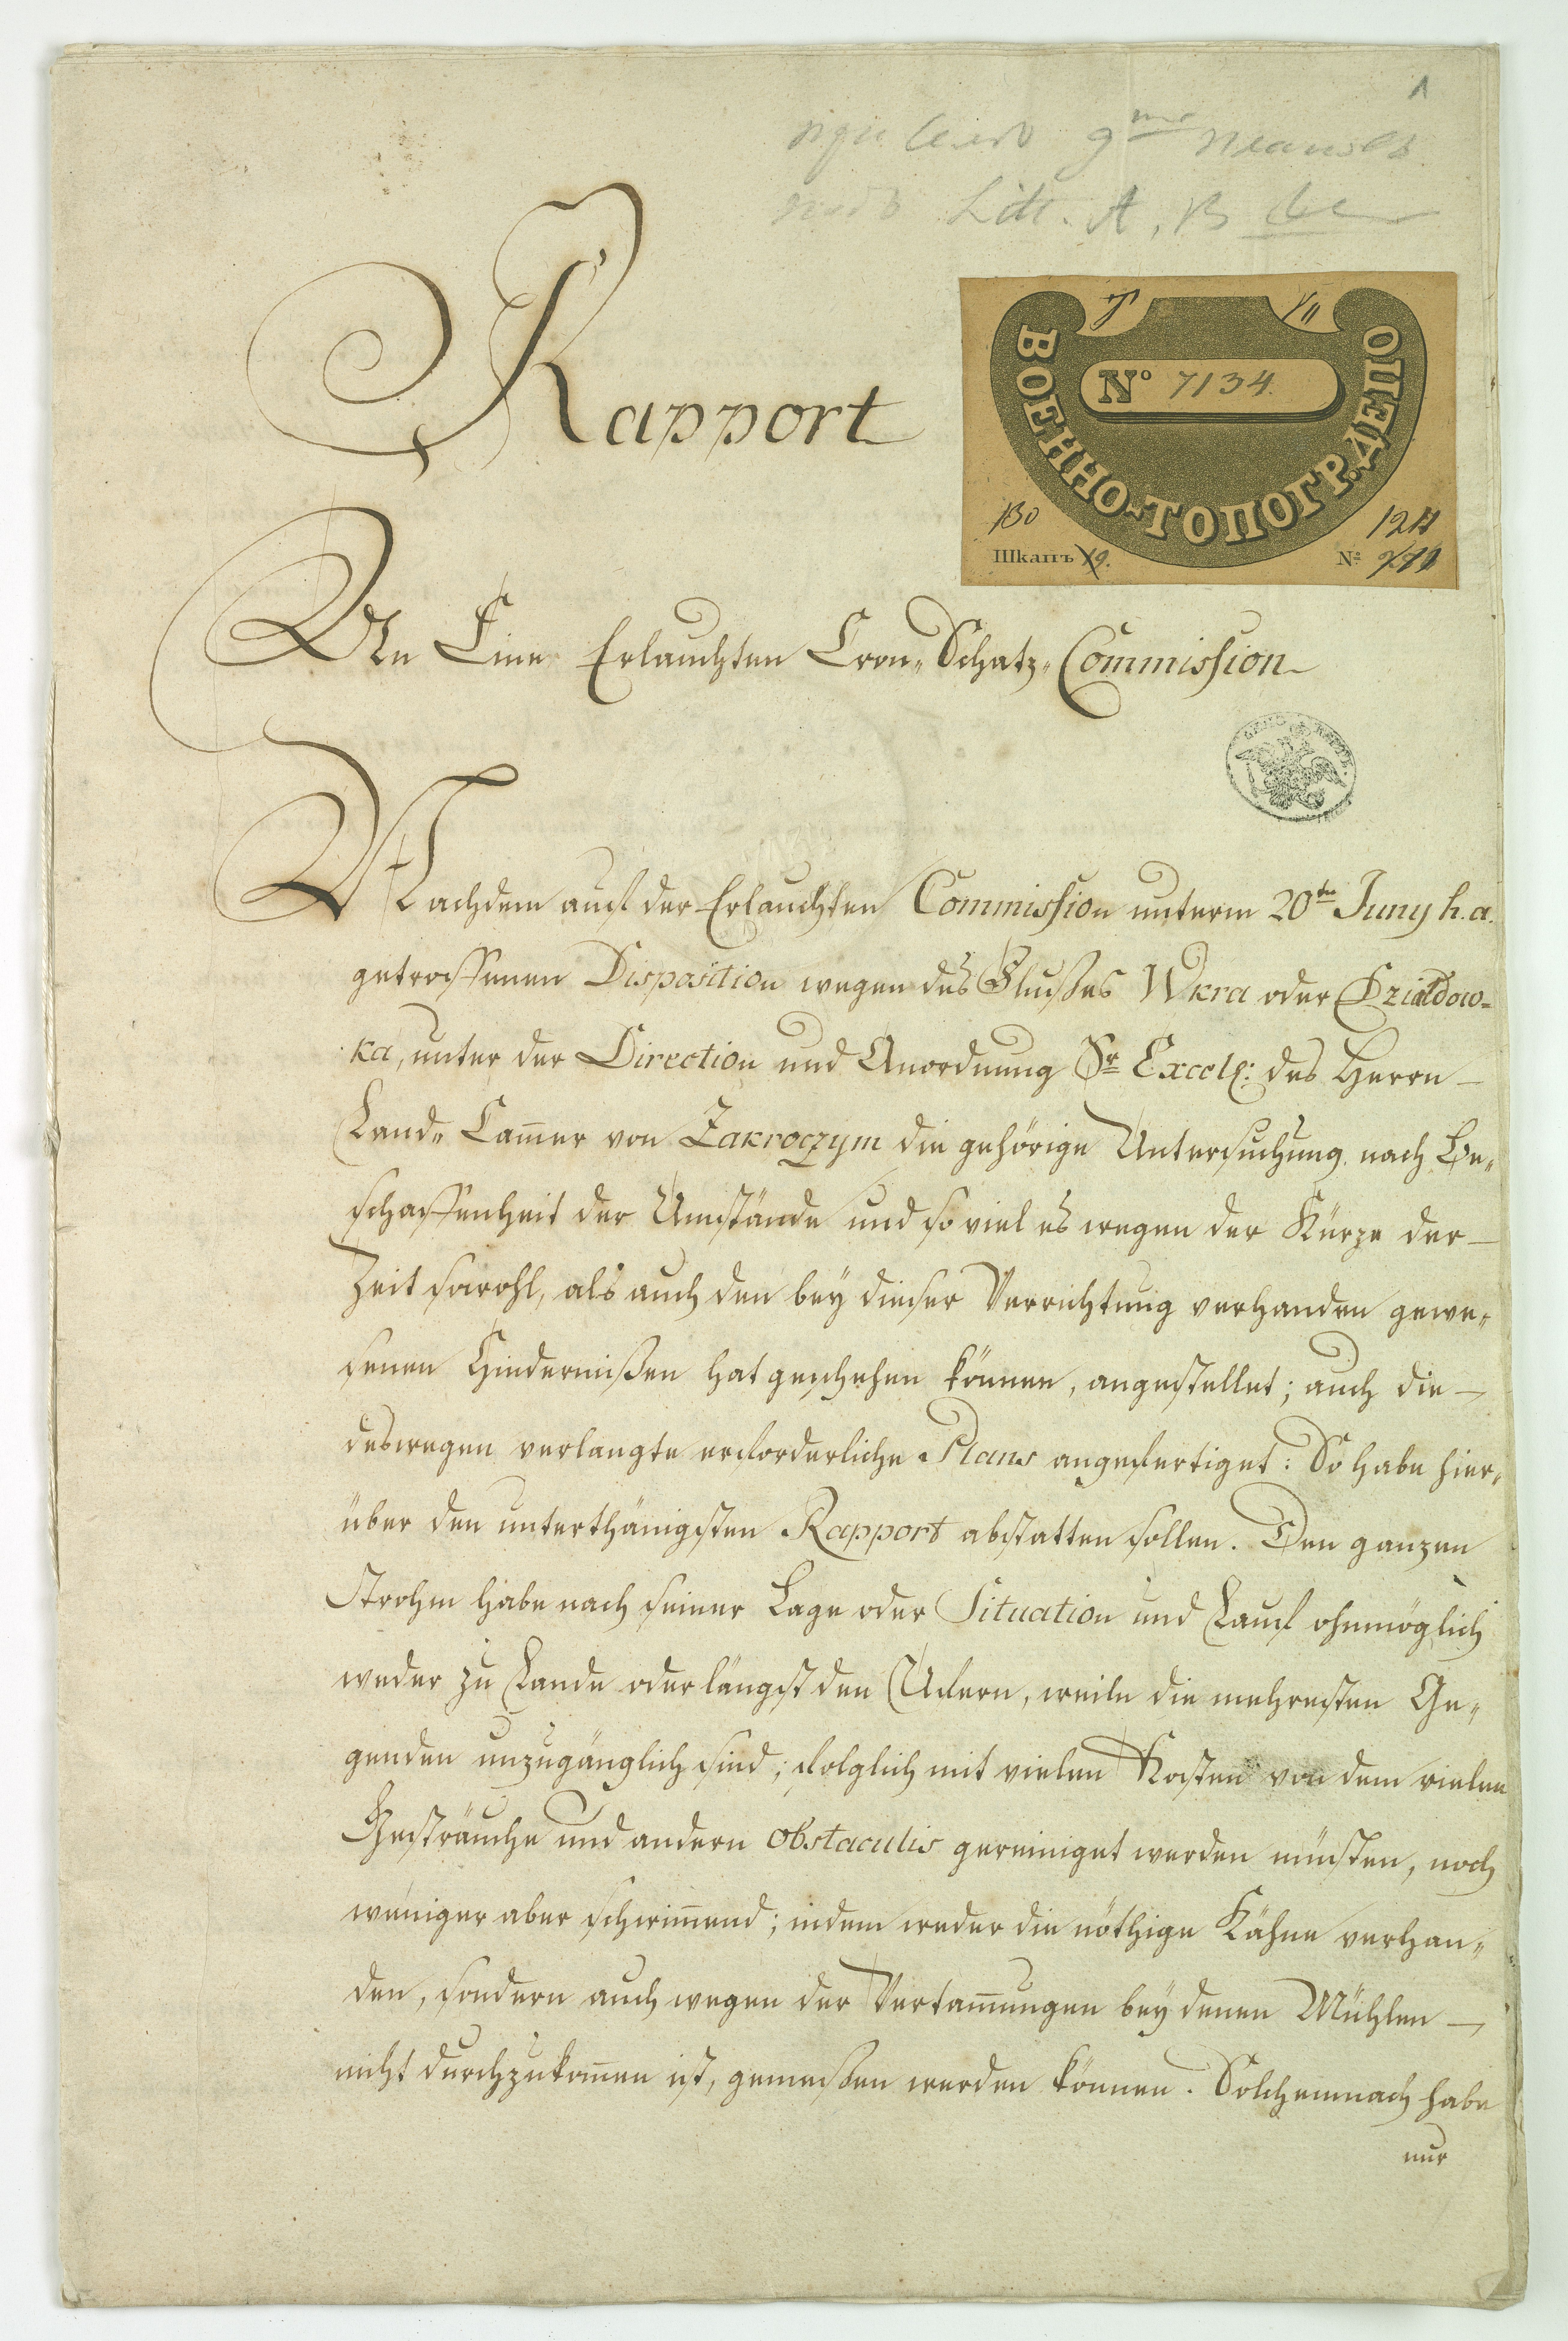 1
Litt. A, B
Rapport
ВОЕННО-ТОПОГР. ДЕПО
No 7134.
130
121
Шкапъ 19.
No
An Eine Erlauchten Cron-Schatz-Commission
Nachdem auf der Erlauchten Commission unterm 20ten Juny h. a.
getroffenen Disposition wegen des Flußes Wkra oder Dzialdow-
ka, unter der Direction und Anordnung Sr Excell: des Herrn
Land-Cam̅er von Zakroczym die gehörige Untersuchung nach Be-
schaffenheit der Umstände und so viel es wegen der Kürze der
Zeit sowohl, als auch den bey dieser Verrichtung verhanden gewe-
senen Hindernißen hat geschehen können, angestellet; auch die
deswegen verlangte erforderliche Plans angefertiget: So habe hier-
über den unterthänigsten Rapport abstatten sollen. Den ganzen
Strohm habe nach seiner Lage oder Situation und Lauf ohnmöglich
weder zu Lande oder längst den Ufern, weile die mehresten Ge-
genden unzugänglich sind; folglich mit vielen Kosten von dem vielen
Gesträuche und andern obstaculis gereiniget werden müsten, noch
weniger aber schwim̅end; indem weder die nöthige Kähne verhan-
den, sondern auch wegen der Vertam̅ungen bey denen Mühlen
nicht durchzukom̅en ist, gemeßen werden können. Solchemnach habe
nur